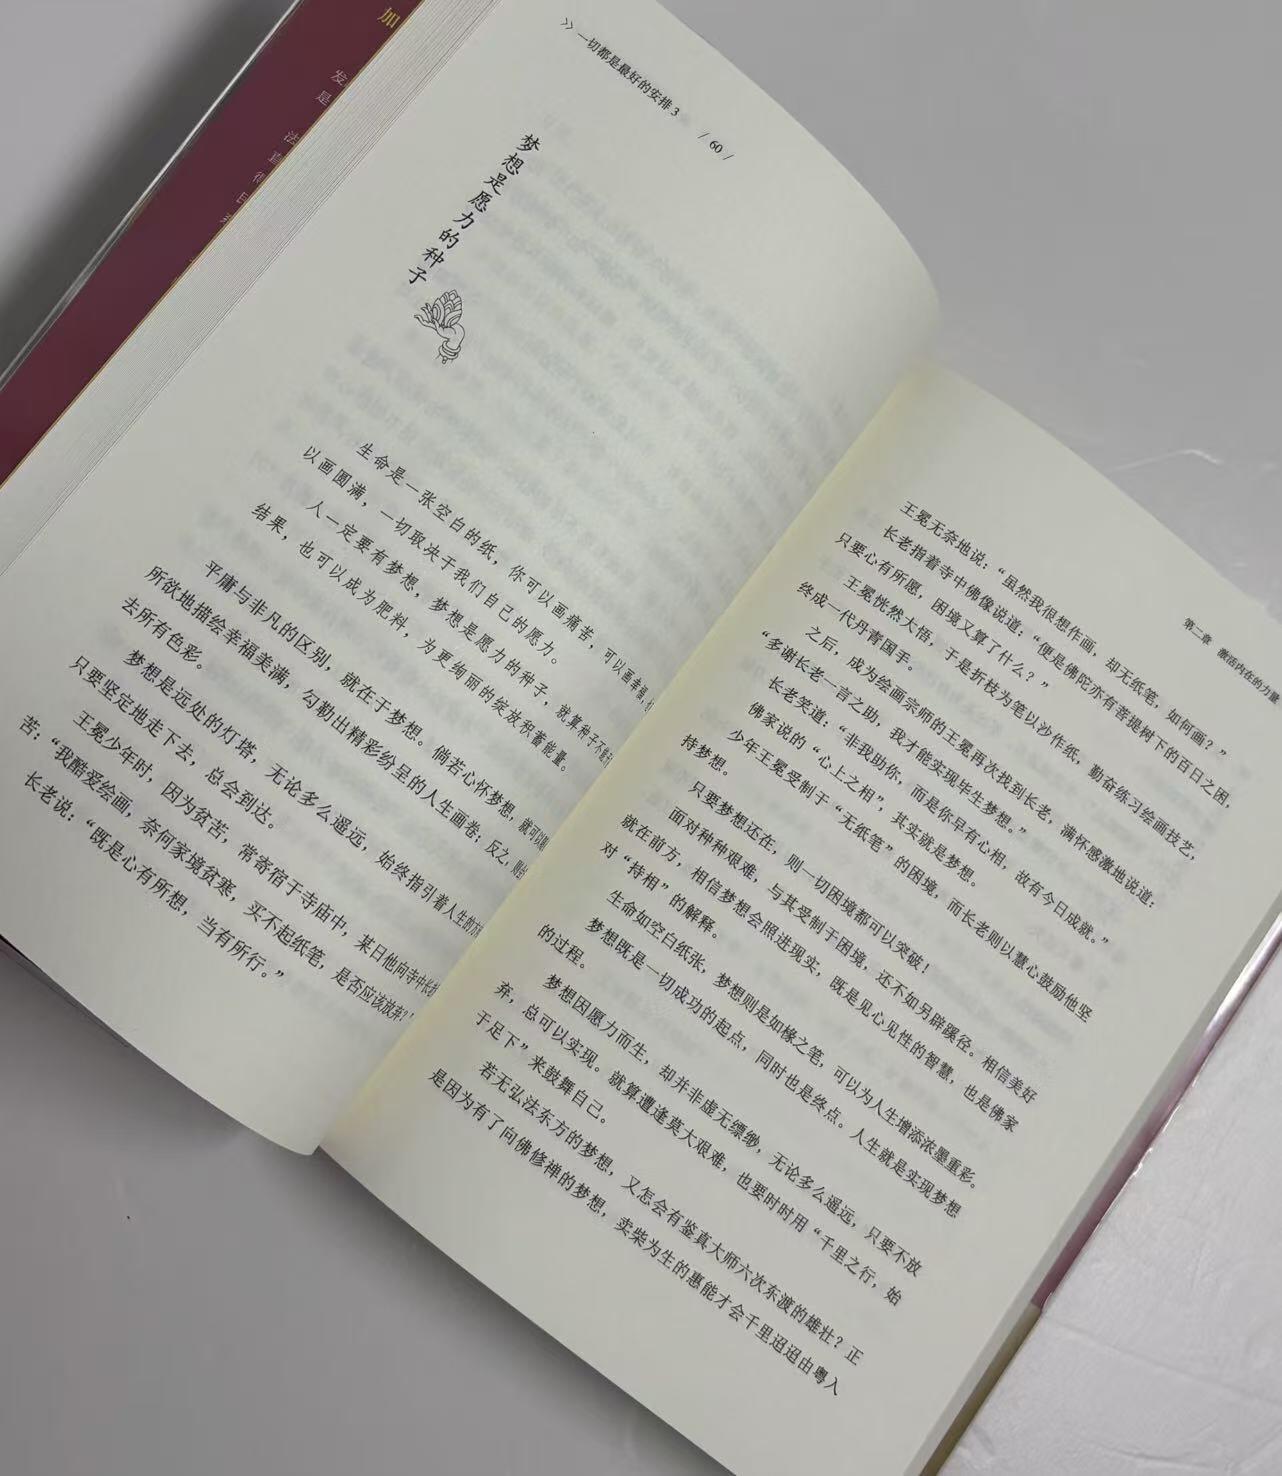 加
发
是
法
>> 一切都是最好的安排 3
/ 60 /
梦想是愿力的种子
生命是一张空白的纸，你可以画痛苦，可以画幸福，
以画圆满，一切取决于我们自己的愿力。
人一定要有梦想，梦想是愿力的种子，就算种子不能
结果，也可以成为肥料，为更绚丽的绽放积蓄能量。
平庸与非凡的区别，就在于梦想。倘若心怀梦想，就可以
所欲地描绘幸福美满，勾勒出精彩纷呈的人生画卷；反之，则
去所有色彩。
梦想是远处的灯塔，无论多么遥远，始终指引着人生的方
只要坚定地走下去，总会到达。
王冕少年时，因为贫苦，常寄宿于寺庙中，某日他向寺中长
苦：“我酷爱绘画，奈何家境贫寒，买不起纸笔，是否应该放弃？”
长老说：“既是心有所想，当有所行。”
第二章 激活内在的力量
王冕无奈地说：“虽然我很想作画，却无纸笔，如何画？”
长老指着寺中佛像说道：“便是佛陀亦有菩提树下的百日之困，
只要心有所愿，困境又算了什么？”
王冕恍然大悟，于是折枝为笔以沙作纸，勤奋练习绘画技艺，
终成一代丹青国手。
之后，成为绘画宗师的王冕再次找到长老，满怀感激地说道：
“多谢长老一言之助，我才能实现毕生梦想。”
长老笑道：“非我助你，而是你早有心相，故有今日成就。”
佛家说的“心上之相”，其实就是梦想。
少年王冕受制于“无纸笔”的困境，而长老则以慧心鼓励他坚
持梦想。
只要梦想还在，则一切困境都可以突破！
面对种种艰难，与其受制于困境，还不如另辟蹊径。相信美好
就在前方，相信梦想会照进现实，既是见心见性的智慧，也是佛家
对“持相”的解释。
生命如空白纸张，梦想则是如椽之笔，可以为人生增添浓墨重彩。
梦想既是一切成功的起点，同时也是终点。人生就是实现梦想
的过程。
梦想因愿力而生，却并非虚无缥缈，无论多么遥远，只要不放
弃，总可以实现。就算遭逢莫大艰难，也要时时用“千里之行，始
于足下”来鼓舞自己。
若无弘法东方的梦想，又怎会有鉴真大师六次东渡的雄壮？正
是因为有了向佛修禅的梦想，卖柴为生的惠能才会千里迢迢由粤入